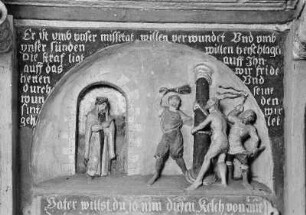 Er ist vmb vnser missetat willen verwundet Vnd vmb
vnser sünden willen zerschlagen
Die straf ligt auff Ihn
auff das wir fride
hetten Vnd
durch seine
wun den
wir
Vater willst du so nim diesen Kelch von mir